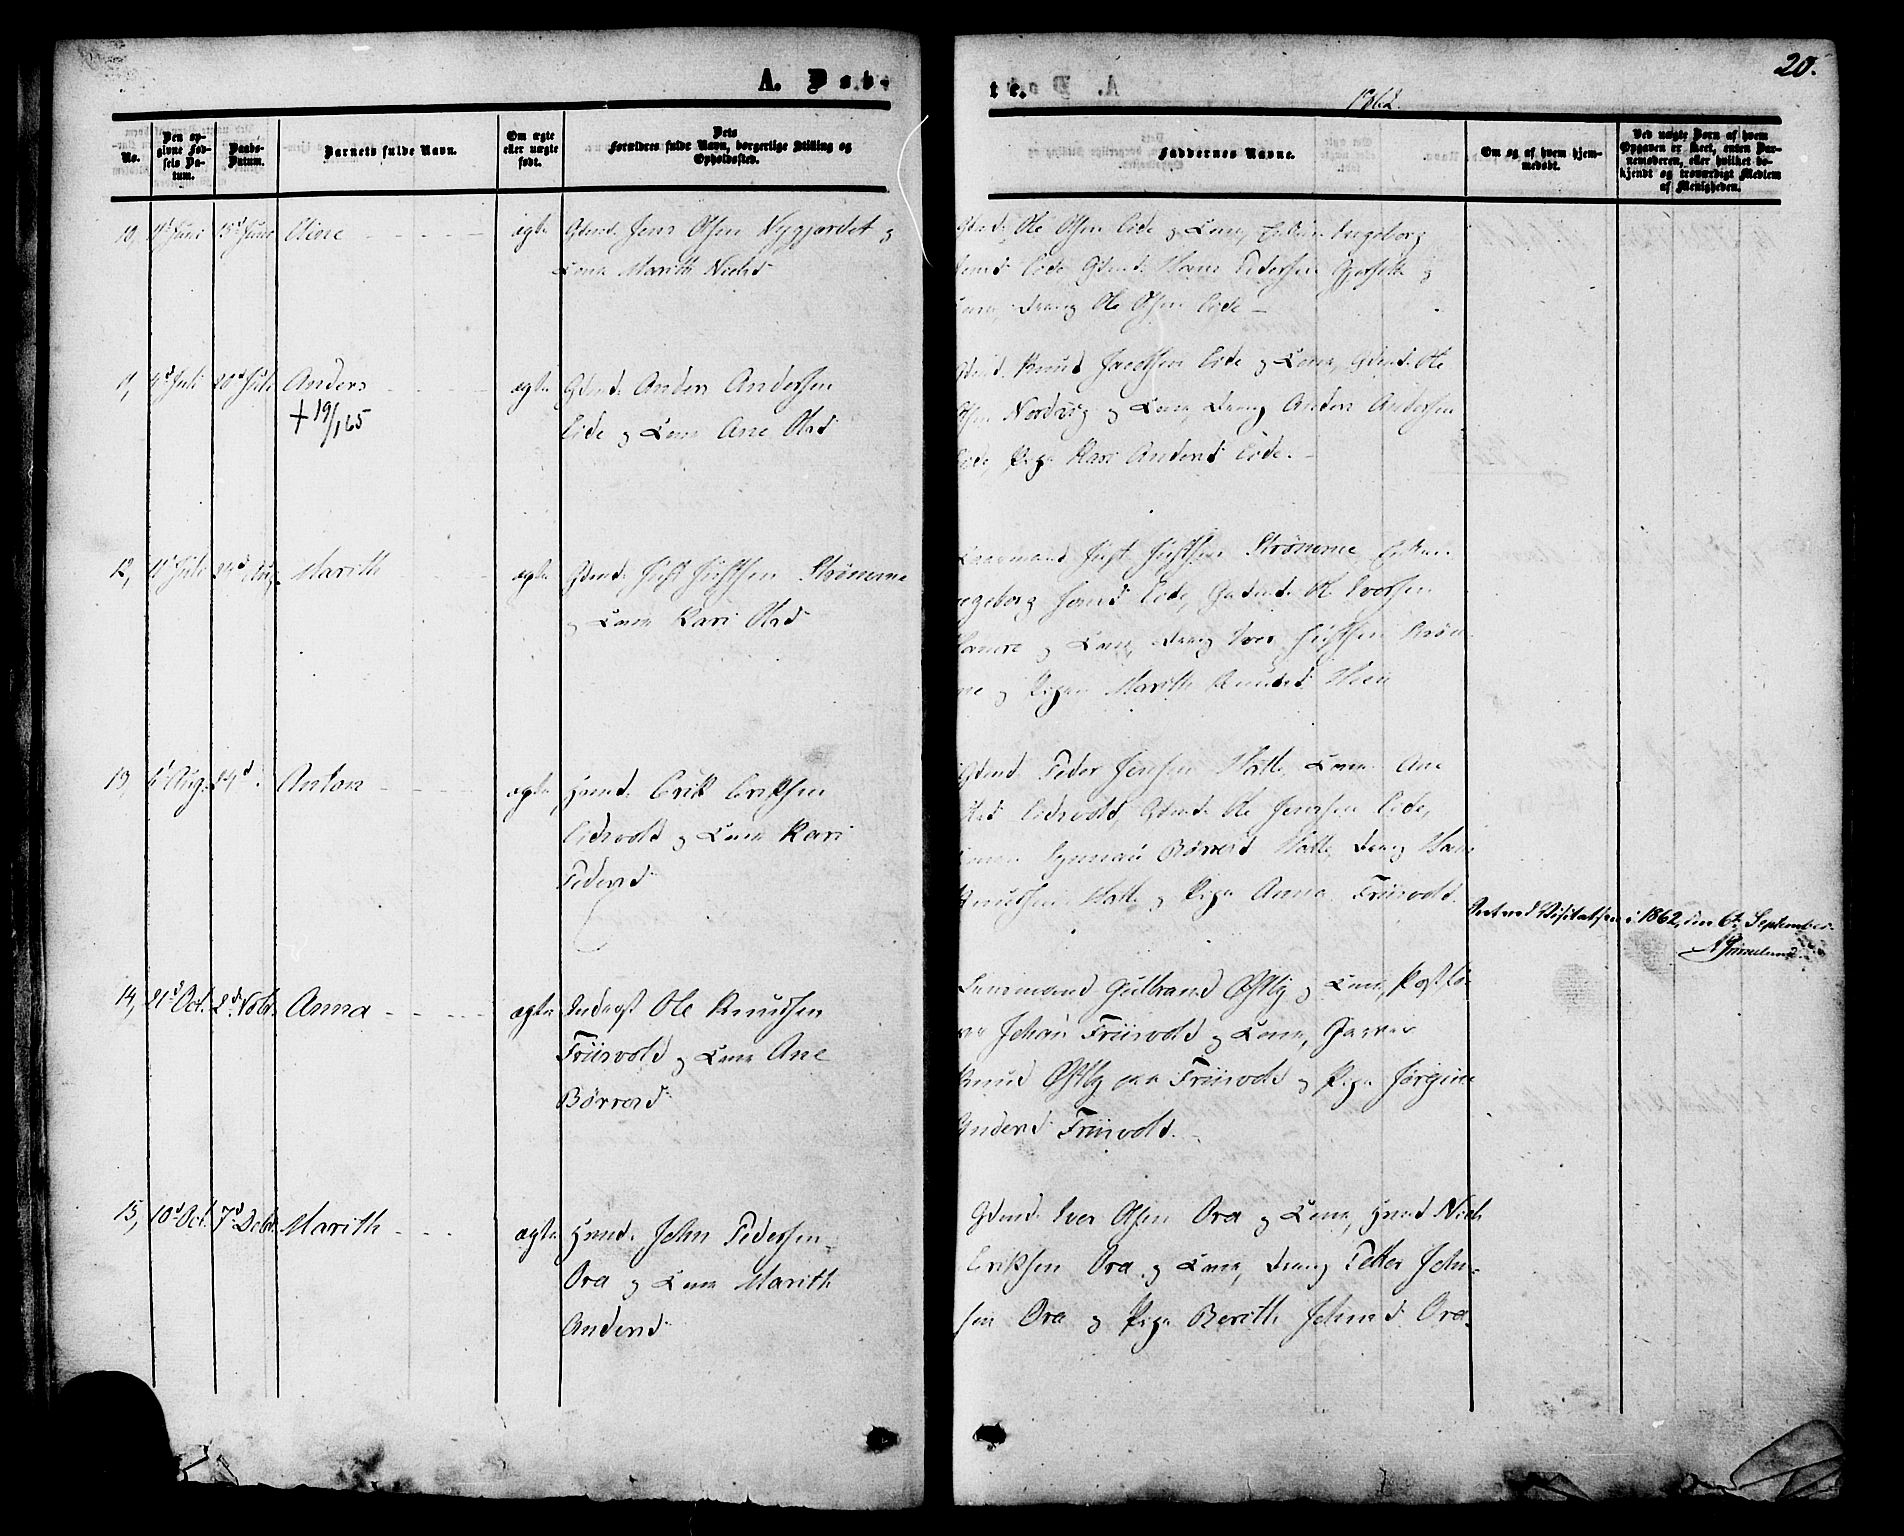 A. Døb-
No.
Den op-
givne Fød-
sels Da-
tum.
Daabs-
Datum.
Barnets fulde Navn.
Om ægte
eller uægte
født.
Dets
Forældres fulde Navn, borgerlige Stilling og
Opholdssted.
10, 11 Juni 15d Juni Oline ægte Gbmd. Jens Olsen Nygjærdet og
Kone Marith Nielsd
11, 4d Juli 20d Juli Anders ægte Gbmd. Anders Andersen
+ 19/1 65
Eide og Kone Ane Olsd
12, Juli 24d Aug. Marith ægte Gbmd. Just Justsen Strønerne
og Kone Kari Olsd
13, Aug. 24d Anton ægte Hmd. Erik Eriksen
Eidsvold og Kone Kari
Pedersd
14, 21d Oct. 2d Novbr. Anna ægte Inderst Ole Knudsen
Friisvold og Kone Ane
Børresd
15, 10d Oct. 7d Decbr. Marith ægte Hmd. John Pedersen
Ora og Kone Marith
Andersd
20.
te.
1862.
Faddernes Navne.
Om og af hvem hjem-
medøbt.
Ved uægte Børn af hvem
Opgaven er skeet, enten Bar-
nemoderen, eller hvilket be-
kjendt og troværdigt Medlem
af Menigheden.
Gbmd. Ole Olsen Eide og Kone, Enken Ingeborg
Eide, Gbmd. Hans Pedersen og
Kone, Dreng Ole Olsen Eide
Gbmd. Knud Jacobsen Eide og Kone, Gbmd. Ole
Olsen Nordvig og Kone, Dreng Anders Andersen
Eide, Pige Kari Andersd Eide.
Just Justsen Strønerne, Enken
Ingeborg Eide, Gbmd. Ole Iversen
og Kone, Dreng Iver Justsen Strøn-
erne og Pigen Marith Knudsd
Gbmd. Peder Jensen Hatle, Kone Ane
Olsd Eidsvold, Gbmd. Ole Jensen Eide,
Kone Synnøv Børresd Hatle, Dreng Hans
Knudsen Hatle og Pige Anna Friisvold.
Seet ved Visitatsen i 1862, den 6te September.
Lensmand Gulbrand Østby og Kone,
Johan Friisvold og Kone,
Knud Østby paa Friisvold og Pige Jørgine
Andersd Friisvold.
Gbmd. Iver Olsen Ora og Kone, Hmd Niels
Eriksen Ora og Kone, Dreng Petter John-
sen Ora og Pige Berith Johnsd Ora.